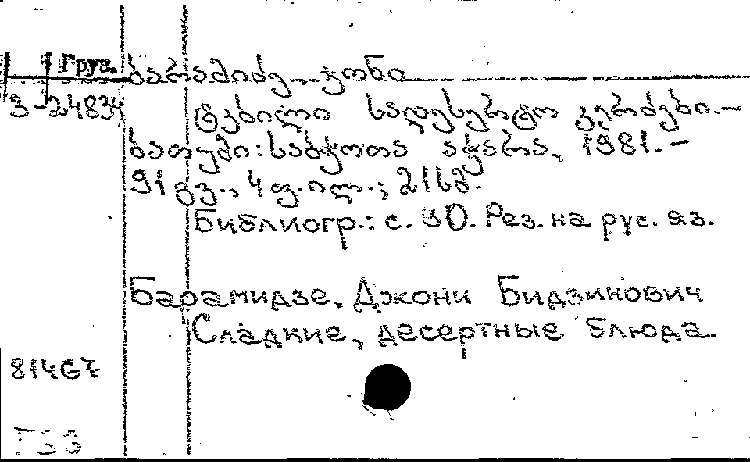 Груз. ბარამიძე, ჯონი
3-24834 ტკბილი სადესერტო კერძები.—
ბათუმი: საბჭოთა აჭარა, 1981.—
91 გვ., 4 ფ. ილ.; 21 სმ.
Библиогр.: с. Рез. на рус. яз.
Барамидзе, Джони Бидзинович
Сладкие, десертные блюда.